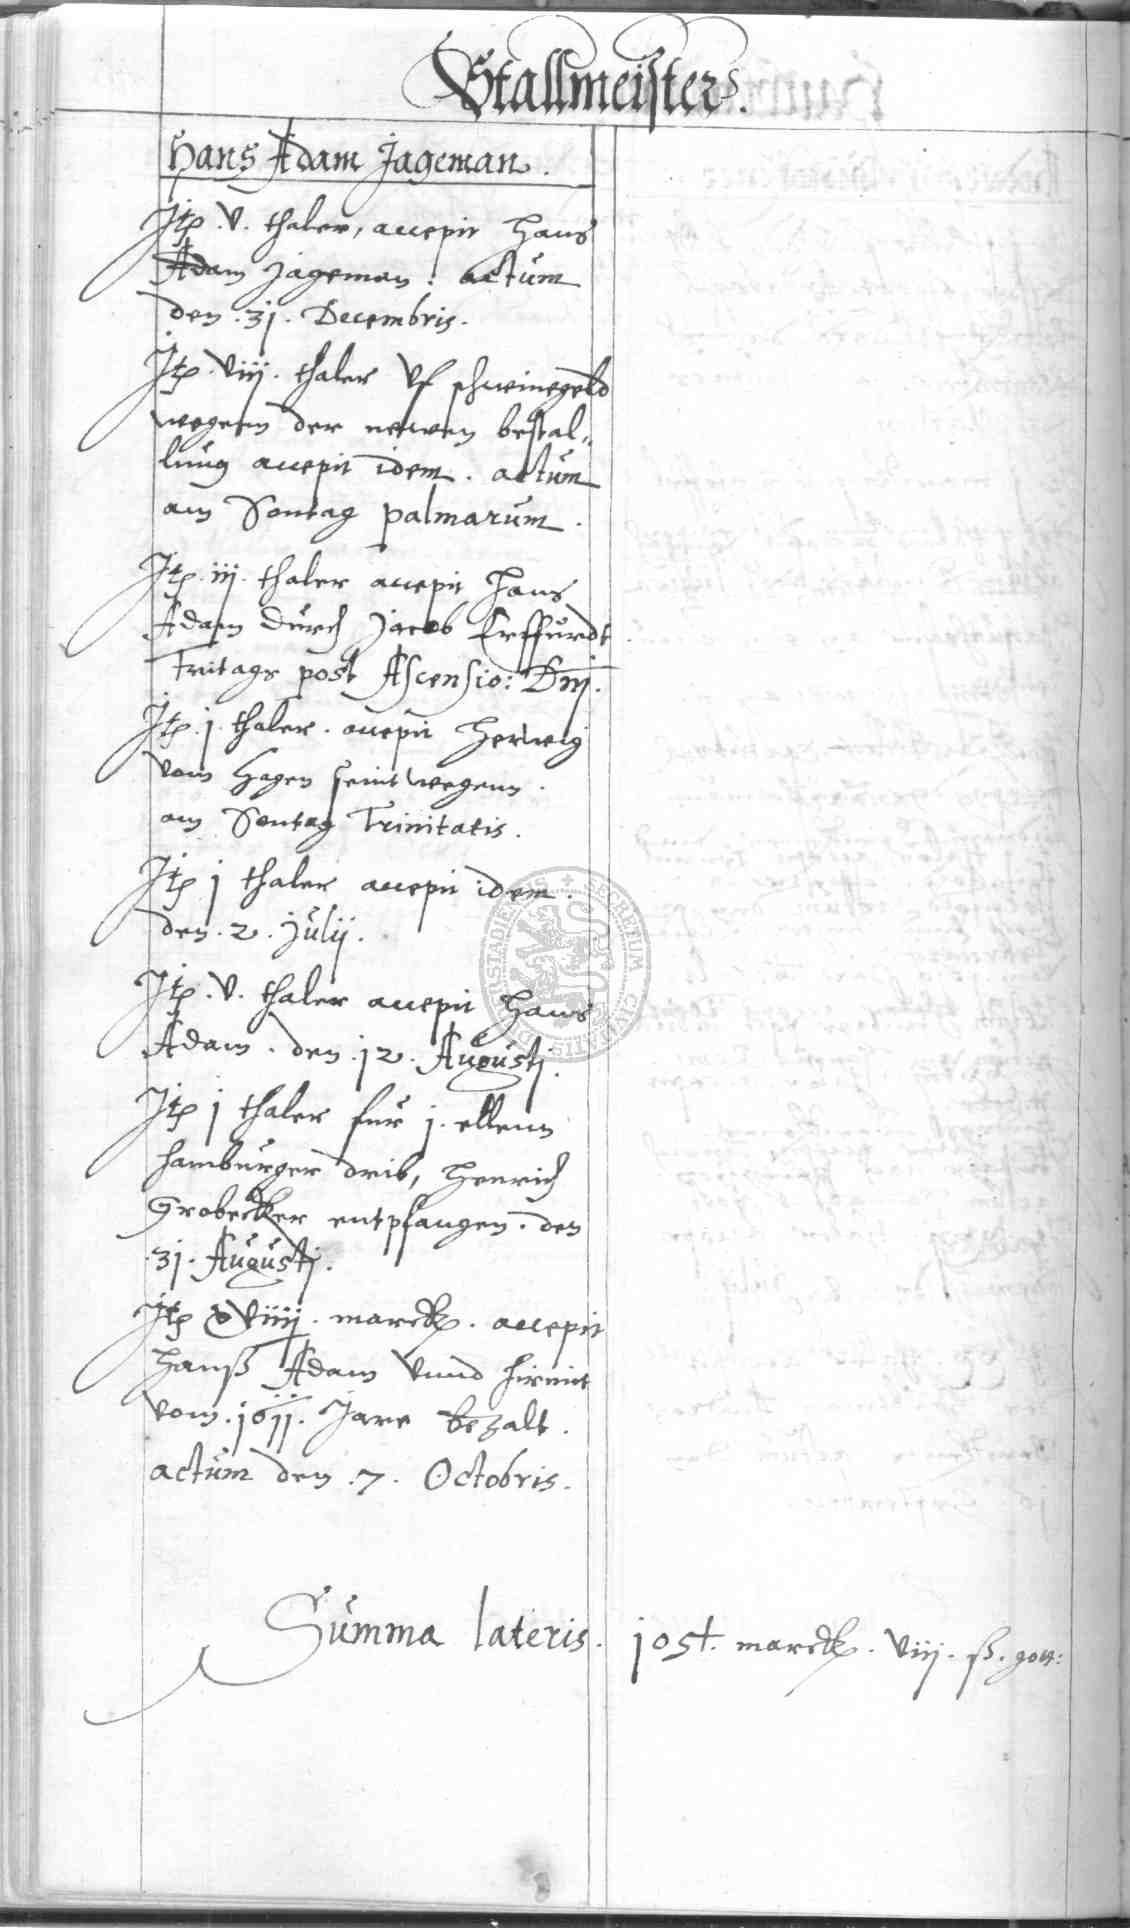 Stallmeister.
Hans Adam Jageman.
Itp .V. thaler, accepit Hans
Adam Jageman. actum
den .31. Decembris.
Itp .Viij. thaler Vf schweinegeld
wegenn der newen bestal„
lung accepit idem. actum
am Sontag palmarum.
Itp .iij. thaler accepit Hans
Adam durch Jacob Erffurdt
Freitags post Ascensio: Dnj.
Itp .j. thaler. accepit Herwig
vom Hagen seint wegenn.
am Sontag Trinitatis.
Itp j thaler accepit idem.
den .2. Julij.
Itp .V. thaler accepit Hans
Adam. den .12. Augustj.
Itp j thaler fur j. ellenn
hamburger drib, Henrich
Grobecker entpfangen. den
.31. Augustj.
Itp xViiij. marck. accepit
Hanß Adam vnnd hirmit
vom .1611. Jare bezalt.
actum den .7. Octobris.
Summa lateris. 105½. marck. Viij. ß. gott:
SECRETUM CIVITATIS